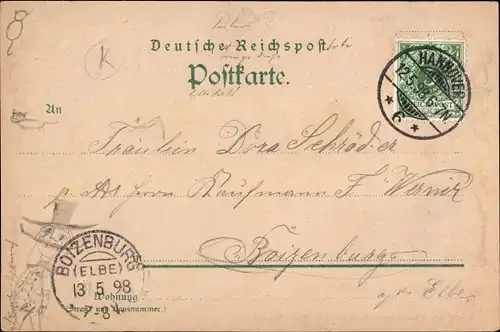 Deutsche Reichspost
Postkarte.
K
HANNOVER
12.5.98.6-7N
* c *
An
Fräulein Dora Schröder
p. Adr. Herrn Kaufmann F. Wernir
Boizenburg
a/d Elbe
BOIZENBURG
(ELBE)
13 5 98
7-8V
Wohnung
(Straße und Hausnummer)